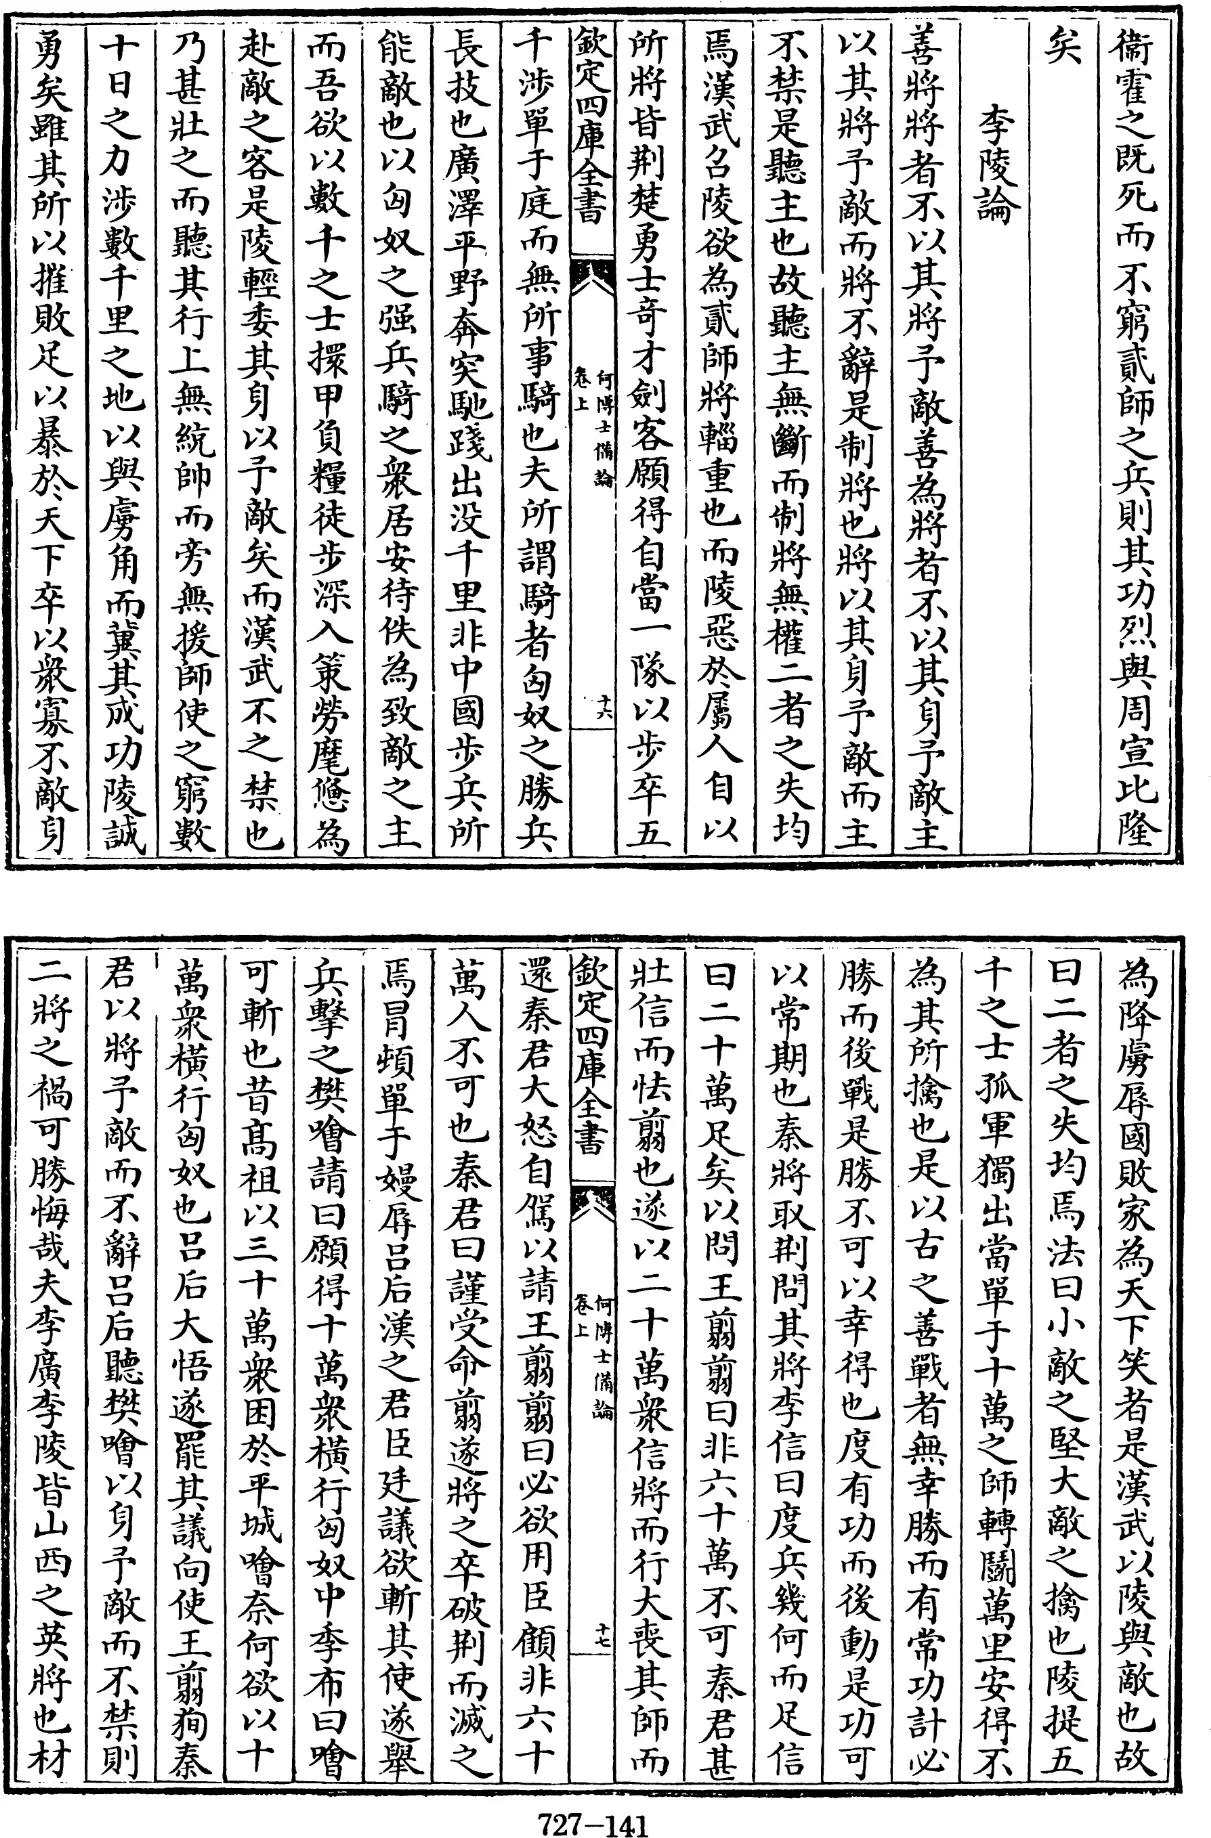 衞霍之既死而不窮貳師之兵則其功烈與周宣比隆
矣
李陵論
善將將者不以其將予敵善為將者不以其身予敵主
以其將予敵而將不辭是制將也將以其身予敵而主
不禁是聽主也故聽主無斷而制將無權二者之失均
焉漢武召陵欲為貳師將輜重也而陵惡於屬人自以
所將皆荆楚勇士奇才劍客願得自當一隊以步卒五
欽定四庫全書
何博士備論
卷上
十六
千涉單于庭而無所事騎也夫所謂騎者匈奴之勝兵
長技也廣澤平野奔突馳踐出没千里非中國步兵所
能敵也以匈奴之强兵騎之衆居安待佚為致敵之主
而吾欲以數千之士擐甲負糧徒步深入策勞麾憊為
赴敵之客是陵輕委其身以予敵矣而漢武不之禁也
乃甚壯之而聽其行上無統帥而旁無援師使之窮數
十日之力涉數千里之地以與虜角而冀其成功陵誠
勇矣雖其所以摧敗足以暴於天下卒以衆寡不敵身
為降虜辱國敗家為天下笑者是漢武以陵與敵也故
曰二者之失均焉法曰小敵之堅大敵之擒也陵提五
千之士孤軍獨出當單于十萬之師轉鬭萬里安得不
為其所擒也是以古之善戰者無幸勝而有常功計必
勝而後戰是勝不可以幸得也度有功而後動是功可
以常期也秦將取荆問其將李信曰度兵幾何而足信
曰二十萬足矣以問王翦翦曰非六十萬不可秦君甚
壯信而怯翦也遂以二十萬衆信將而行大喪其師而
欽定四庫全書
何博士備論
卷上
十七
還秦君大怒自駕以請王翦翦曰必欲用臣顧非六十
萬人不可也秦君曰謹受命翦遂將之卒破荆而滅之
焉冒頓單于嫚辱吕后漢之君臣廷議欲斬其使遂舉
兵擊之樊噲請曰願得十萬衆橫行匈奴中季布曰噲
可斬也昔髙祖以三十萬衆困於平城噲奈何欲以十
萬衆橫行匈奴也吕后大悟遂罷其議向使王翦狥秦
君以將予敵而不辭吕后聽樊噲以身予敵而不禁則
二將之禍可勝悔哉夫李廣李陵皆山西之英將也材
727-141